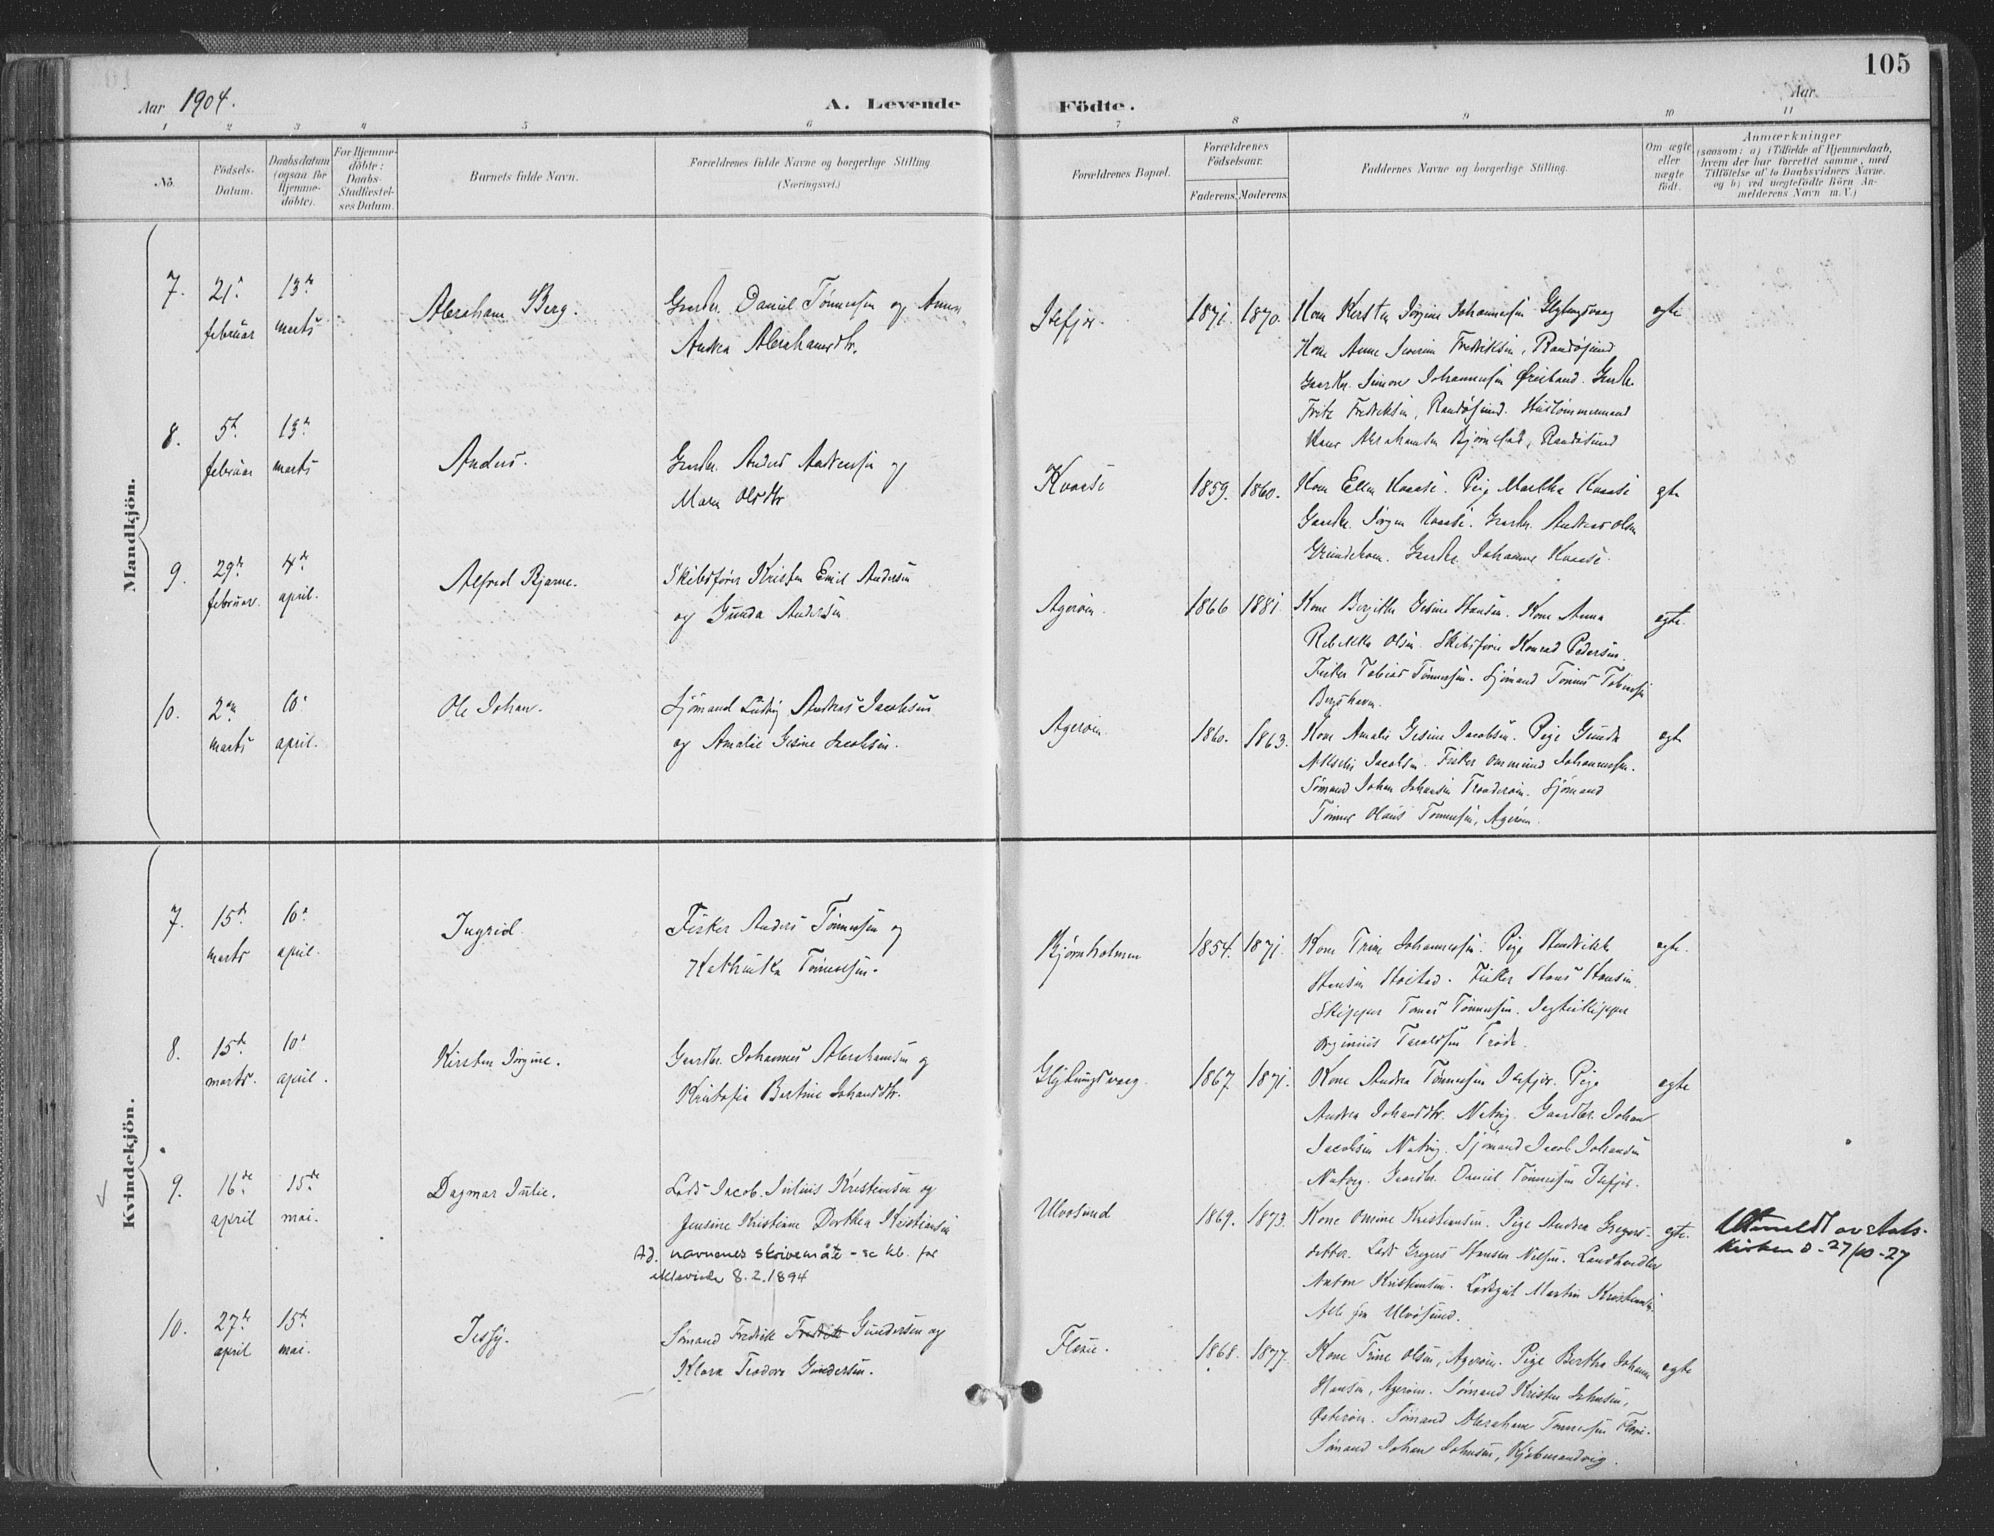 105
Aar 1904. A. Levende Födte. Aar
1 2 3 4 5 6 7 8 9 10 11
No. Födsels-Datum. Daabsdatum (ogsaa for Hjemme-döbte). For Hjemme-döbte: Daabs-Stadfæstel-ses Datum. Barnets fulde Navn. Forældrenes fulde Navne og borgerlige Stilling. (Næringsvei.) Forældrenes Bopæl. Forældrenes Födselsaar. Faderens. Moderens. Faddernes Navne og borgerlige Stilling. Om ægte eller uægte födt. Anmærkninger
(saasom: a) i Tilfælde af Hjemmedaab,
hvem der har forrettet samme, med
Tilföielse af to Daabsvidners Navne.
og b) ved uægtefödte Börn An-
melderens Navn m. V.)
Mandkjön.
7. 21. februar 13de marts Abraham Berg. Gaardbr. Daniel Tönnessen og Anna
Andrea Abrahamsdtr.
1871. 1870. Kone Kirsten Jörgine Johannessen
Kone Anne Severine Fredriksen, Randösund
Gaardbr. Simon Johannessen
Fritz Fredriksen, Randösund. Hustömmermand
Hans Abrahamsen Bjørnestad, Randösund
ægte
8. 5te februar 13de marts Anders. Gaardbr. Anders Andersen og
Maren Olsdtr.
Kvaase 1859. 1860. Kone Ellen Kvaase. Pige Martha Kvaase
Gaardbr. Jörgen Kvaase. Gaardbr. Andreas Olsen
Gaardbr. Johannes Kvaase.
ægte
9. 29de februar. 4de april. Alfred Bjarne. Skibsförer Kristen Emil Andersen
og Gunda Andersen
Ageröen. 1866 1881. Kone Birgitte Gesine Hansen. Kone Anna
Rebekka Olsen. Skibsförer Konrad Pedersen.
Fisker Tobias Tönnessen. Sjömand Tönnes Tobiassen
ægte.
10. 2den marts 10de april. Ole Johan. Sjömand Ludvig Andreas Jacobsen
og Amalie Gesine Jacobsen.
Ageröen. 1860. 1863. Kone Amalie Gesine Jacobsen. Pige Gunda
Jacobsen. Fisker Ommund Johannessen.
Sömand Johan Johansen Sjömand
Tönnes Olaus Tönnessen, Ageröen.
ægte
Kvindekjön.
7. 15de marts 10de april. Ingrid. Fisker Anders Tönnessen og
Kathinka Tönnessen.
Bjørnholmen 1854. 1871. Kone Trine Johannessen. Pige
Hansen Fisker Hans Hansen.
Skipper Tomas Tönnessen. Jagteskipper
ægte.
8. 15de marts. 10de april. Kirsten Jörgine. Gaardbr. Johannes Abrahamsen og
Kristofia Bertine Johansdtr.
1867 1871. Kone Andrea Tönnessen Pige
Andrea Johansdtr. Natvig. Gaardbr. Johan
Jacobsen Natvig. Sjömand Jacob Johansen
Natvig. Gaardbr. Daniel Tönnessen
ægte
9. 16de april 15de mai. Dagmar Julie. Lods Jacob Julius Kristensen og
Jensine Kristiane Dorthea Kristensen
Ad. navnenes skrivemåte - se kb. for
8.2.1894
Ulvösund 1869. 1873. Kone Omine Kristensen. Pige Andrea Gregers-
datter. Lods Gregers Hansen Nielsen. Landhandler
Anton Kristensen. Martin Kristensen.
Alle fra Ulvösund.
ægte. Utmeldt av stats-
kirken d. 27/10-27
10. 27de april 15de mai. Jessy. Sömand Fredrik Fredrik Gundersen og
Klara Teodora Gundersen.
1868. 1877. Kone Trine Olsen, Ageröen. Pige Bertha Johanne
Hansen, Ageröen. Sömand Kristen Johnsen,
Österöen. Sömand Abraham Tönnessen
Sömand Johan Johnsen, Kjöbmandvig.
ægte